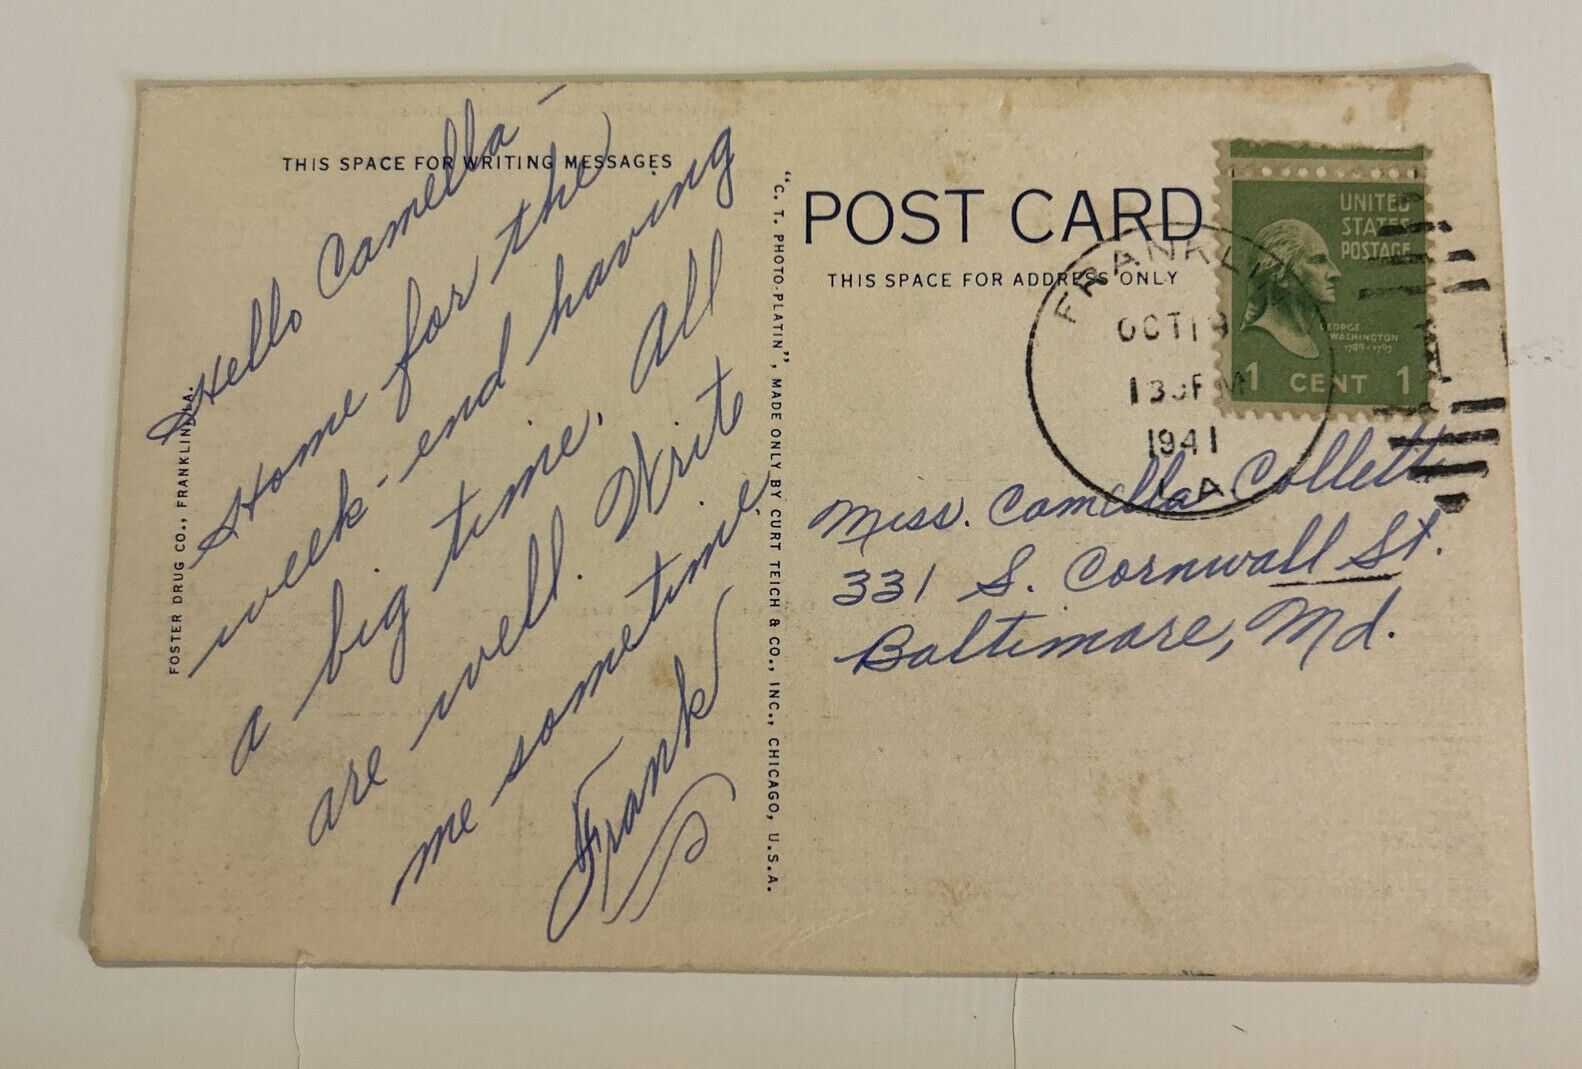 THIS SPACE FOR WRITING MESSAGES
Hello Camella –
Home for the
week-end having
a big time. All
are well. Write
me sometime.
Frank
FOSTER DRUG CO., FRANKLIN, LA.
"C. T. PHOTO-PLATIN", MADE ONLY BY CURT TEICH & CO., INC., CHICAGO, U.S.A.
POST CARD
THIS SPACE FOR ADDRESS ONLY
FRANKLIN
OCT 19
1941
LA
UNITED
STATES
POSTAGE
GEORGE
WASHINGTON
1789-1797
1 CENT 1
Miss. Camella Collett
331 S. Cornwall St.
Baltimore, Md.